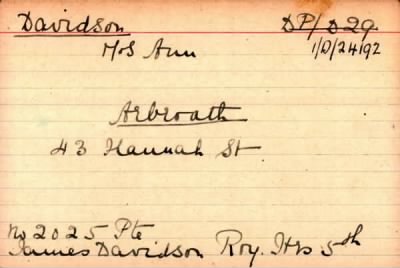 Davidson DP/D29.
Mrs Ann 1/D/24192
Arbroath
43 Hannah St
No 2025 Pte
James Davidson Roy. Hrs 5th